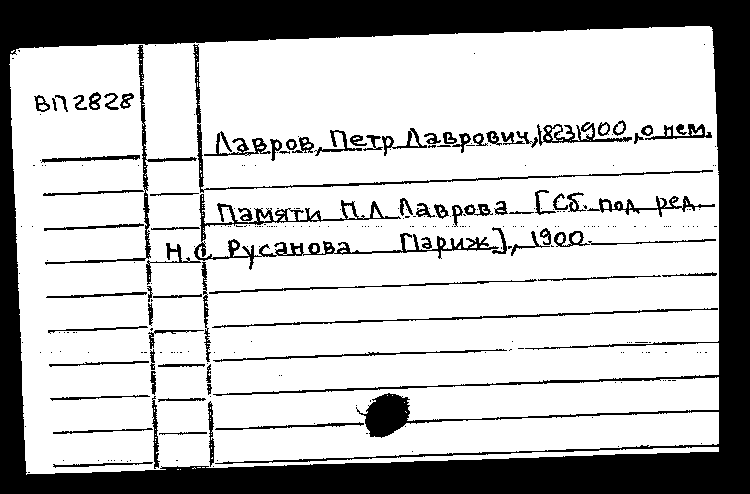 ВП2828
Лавров, Петр Лаврович, 18231900, о нем.
Памяти П.Л Лаврова. [Сб. под ред.
Н.С. Русанова. Париж.], 1900.